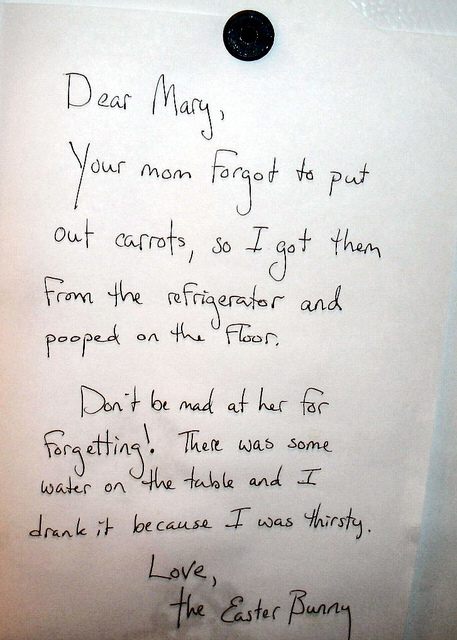 Dear Mary,
Your mom forgot to put
out carrots, so I got them
from the refrigerator and
pooped on the floor.
Don't be mad at her for
forgetting! There was some
water on the table and I
drank it because I was thirsty.
Love,
the Easter Bunny